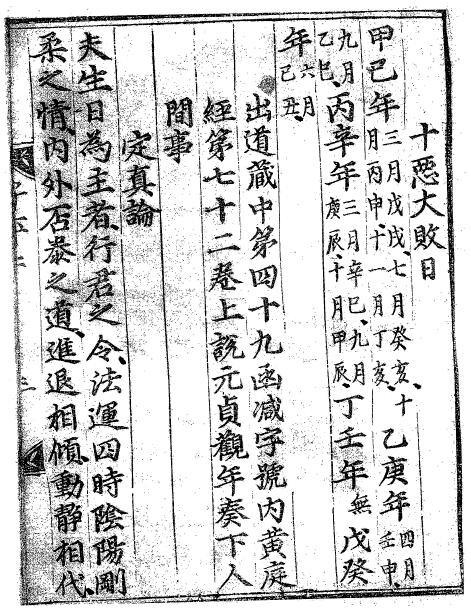 十惡大敗日
甲巳年三月戊戌、七月癸亥、十月丙申、十一月丁亥、乙庚年四月壬申、
九月乙巳、丙辛年三月辛巳、九月庚辰、十月甲辰、丁壬年無戊癸
年六月己丑、
出道藏中第四十九函减字號內黃庭
經第七十二卷上說元貞觀年奏下人
間事
定真論
夫生日為主者、行君之令、法運四時陰陽剛
柔之情、內外否泰之道、進退相傾、動静相代、